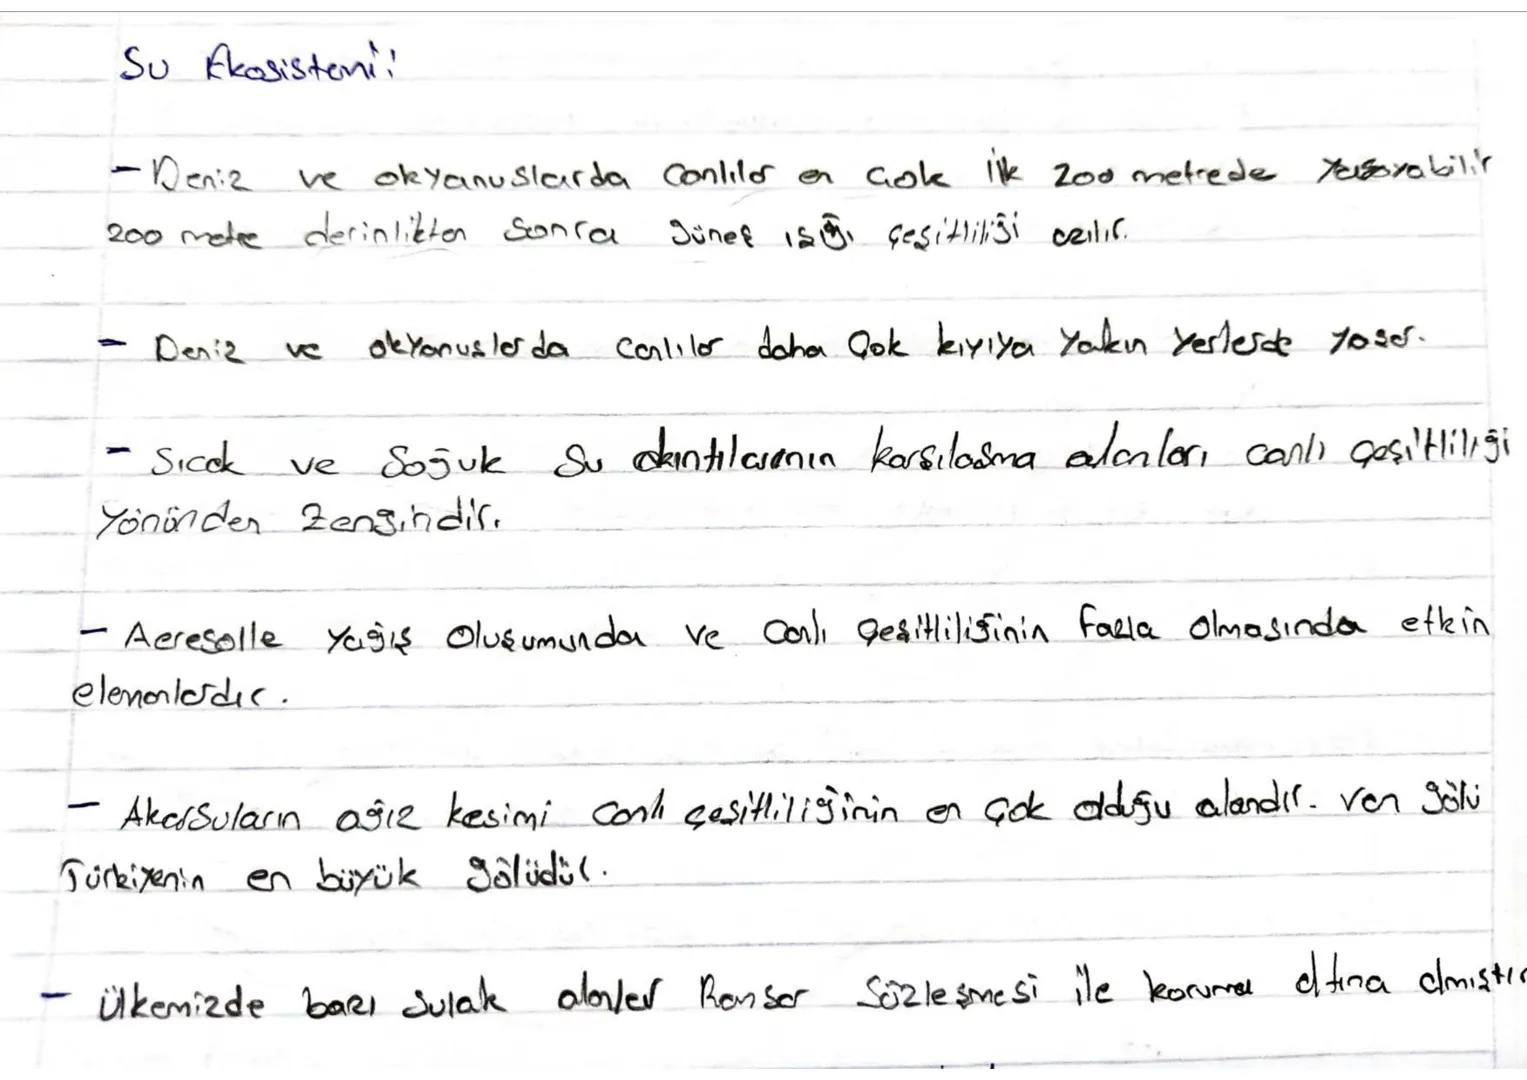 Su Ekosistemi:
- Deniz ve okyanuslarda canlılar en çok ilk 200 metrede yaşayabilir
200 metre derinlikten sonra güneş ışığı çeşitliliği azılır.
- Deniz ve okyanuslarda canlılar daha çok kıyıya yakın yerlerde yaşar.
- Sıcak ve Soğuk Su akıntılarının karşılaşma alanları canlı çeşitliliği
yönünden zengindir.
- Aeresolle yağış oluşumunda ve canlı çeşitliliğinin fazla olmasında etkin
elemanlardır.
- Akarsuların ağız kesimi canlı çeşitliliğinin en çok olduğu alandır. Van gölü
Türkiyenin en büyük gölüdür.
- Ülkemizde bazı sulak alanlar Ramsar Sözleşmesi ile koruma altına almıştır